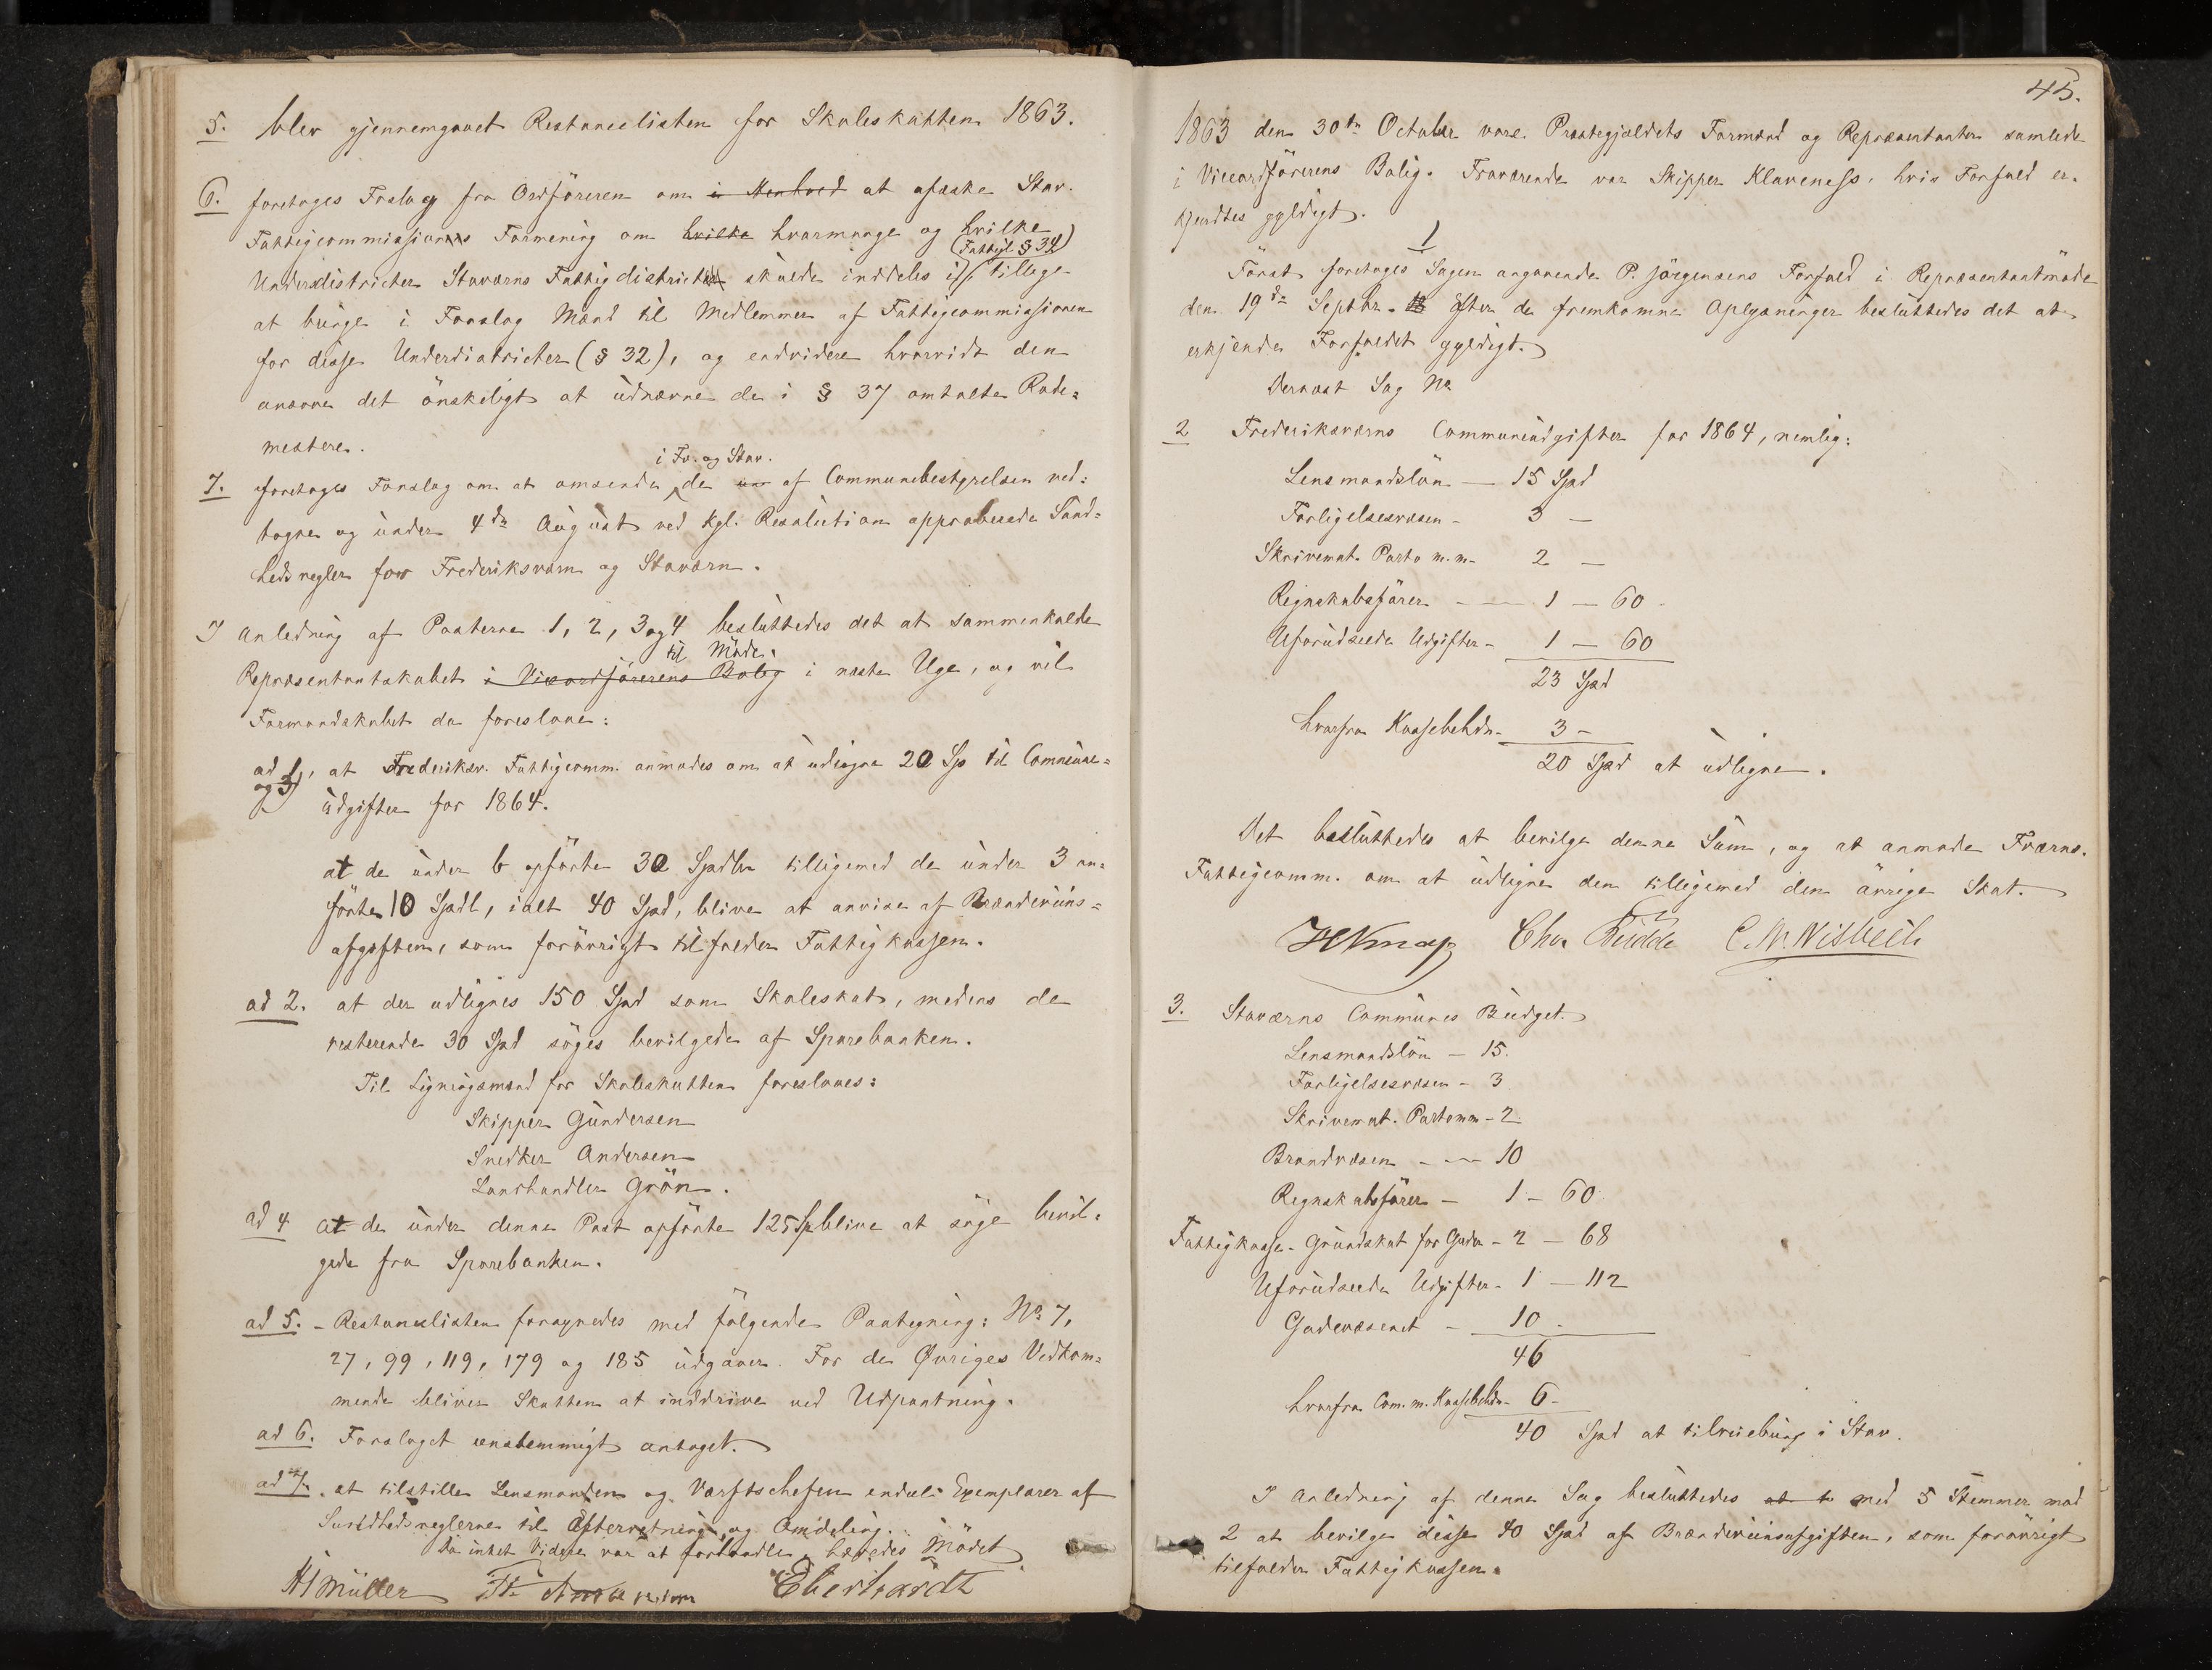 5. blev gjennemgaaet Restancelisten for Skoleskatten 1863.
6. foretoges Forslag fra Ordföreren om i Henhold at afæske Stav.
Fattigcommissions Formening om hvilke hvormange og hvilke
(Fattigl. § 34)
Underdistricter Staværns Fattigdistrict skulde inddeles i, tillige
at bringe i Forslag Mænd til Medlemmer af Fattigcommissionen
for disse Underdistricter (§ 32), og endvidere hvorvidt den
ansaae det önskeligt at udnævne de i § 37 omtalte Rode-
mestere.
i Fv. og Stav.
7. foretoges Forslag om at omsende de af Communebestyrelsen ved-
tagne og under 4de August ved Kgl. Resolution approberede Sund-
hedsregler for Frederiksværn og Staværn.
I Anledning af Posterne 1, 2, 3 og 4 besluttedes det at sammenkalde
til Möde
Repræsentantskabet i Viceordförerens Bolig i næste Uge, og vil
Formandskabet da foreslaae:
ad 1, at Frederiksv. Fattigcomm. anmodes om at udligne 20 Sp til Commune-
og 3) udgifter for 1864.
at de under b opförte 30 Spdlr tilligemed de under 3 an-
förte 10 Spdl, ialt 40 Spd, blive at anvise af Brændeviins-
afgiften, som forövrigt tilfalder Fattigkassen.
ad 2. at der udlignes 150 Spd som Skoleskat, medens de
resterende 30 Spd söges bevilgede af Sparebanken.
Til Ligningsmænd for Skoleskatten foresloges:
Skipper Gundersen
Snedker Andersen
Landhandler Grön.
ad 4 at de under denne Post opförte 125 Sp blive at söge bevil-
gede fra Sparebanken.
ad 5. - Restancelisten forsynedes med fölgende Paategning: No 7,
27, 99, 119, 179 og 185 udgaaer. For de Øvriges Vedkom-
mende bliver Skatten at inddrive ved Udpantning.
ad 6. Forslaget eenstemmigt antaget.
ad 7. at tilstille Lensmanden og Værftschefen endeel Exemplarer af
Sundhedsreglerne til Efterretning og Omdeling.
Da intet Videre var at forhandle, hævedes Mödet
HMüller Eberhardt
45.
1863 den 30te October vare Præstegjældets Formænd og Repræsentanter samlede
i Viceordförerens Bolig. Fraværende var Skipper Klaveness, hvis Forfald er-
kjendtes gyldigt.
1
Först foretoges Sagen angaaende P. Jörgensens Forfald i Repræsentantmöde
den 19de Septbr. Efter de fremkomne Oplysninger besluttedes det at
erkjende Forfaldet gyldigt.
Dernæst Sag No
2 Frederiksværns Communeudgifter for 1864, nemlig:
Lensmandslön — 15 Spd
Forligelsesvæsen - 3 —
Skrivemat. Porto m.m. 2 —
Regnskabsförer — 1 — 60
Uforudseede Udgifter - 1 — 60
23 Spd
hvorfra Kassebehdn. 3 -
20 Spd at udligne.
Det besluttedes at bevilge denne Sum, og at anmode Fværns.
Fattigcomm. om at udligne den tilligemed den övrige Skat.
Chr. Budde C. N. Nisbeth
3. Staværns Communes Budget.
Lensmandslön — 15.
Forligelsesvæsen - 3
Skrivemat. Porto mm - 2
Brandvæsen - — 10
Regnskabsförer — 1 - 60
Fattigkasse - Grundskat for Gader - 2 — 68
Uforudseede Udgifter - 1 — 112
Gadevæsenet — 10 -
46
hvorfra Com. m. Kassebehdn. 6 -
40 Spd at tilveiebring i Stav.
I Anledning af denne Sag besluttedes at med 5 Stemmer mod
2 at bevilge disse 40 Spd af Brændeviinsafgiften, som forövrigt
tilfalder Fattigkassen.